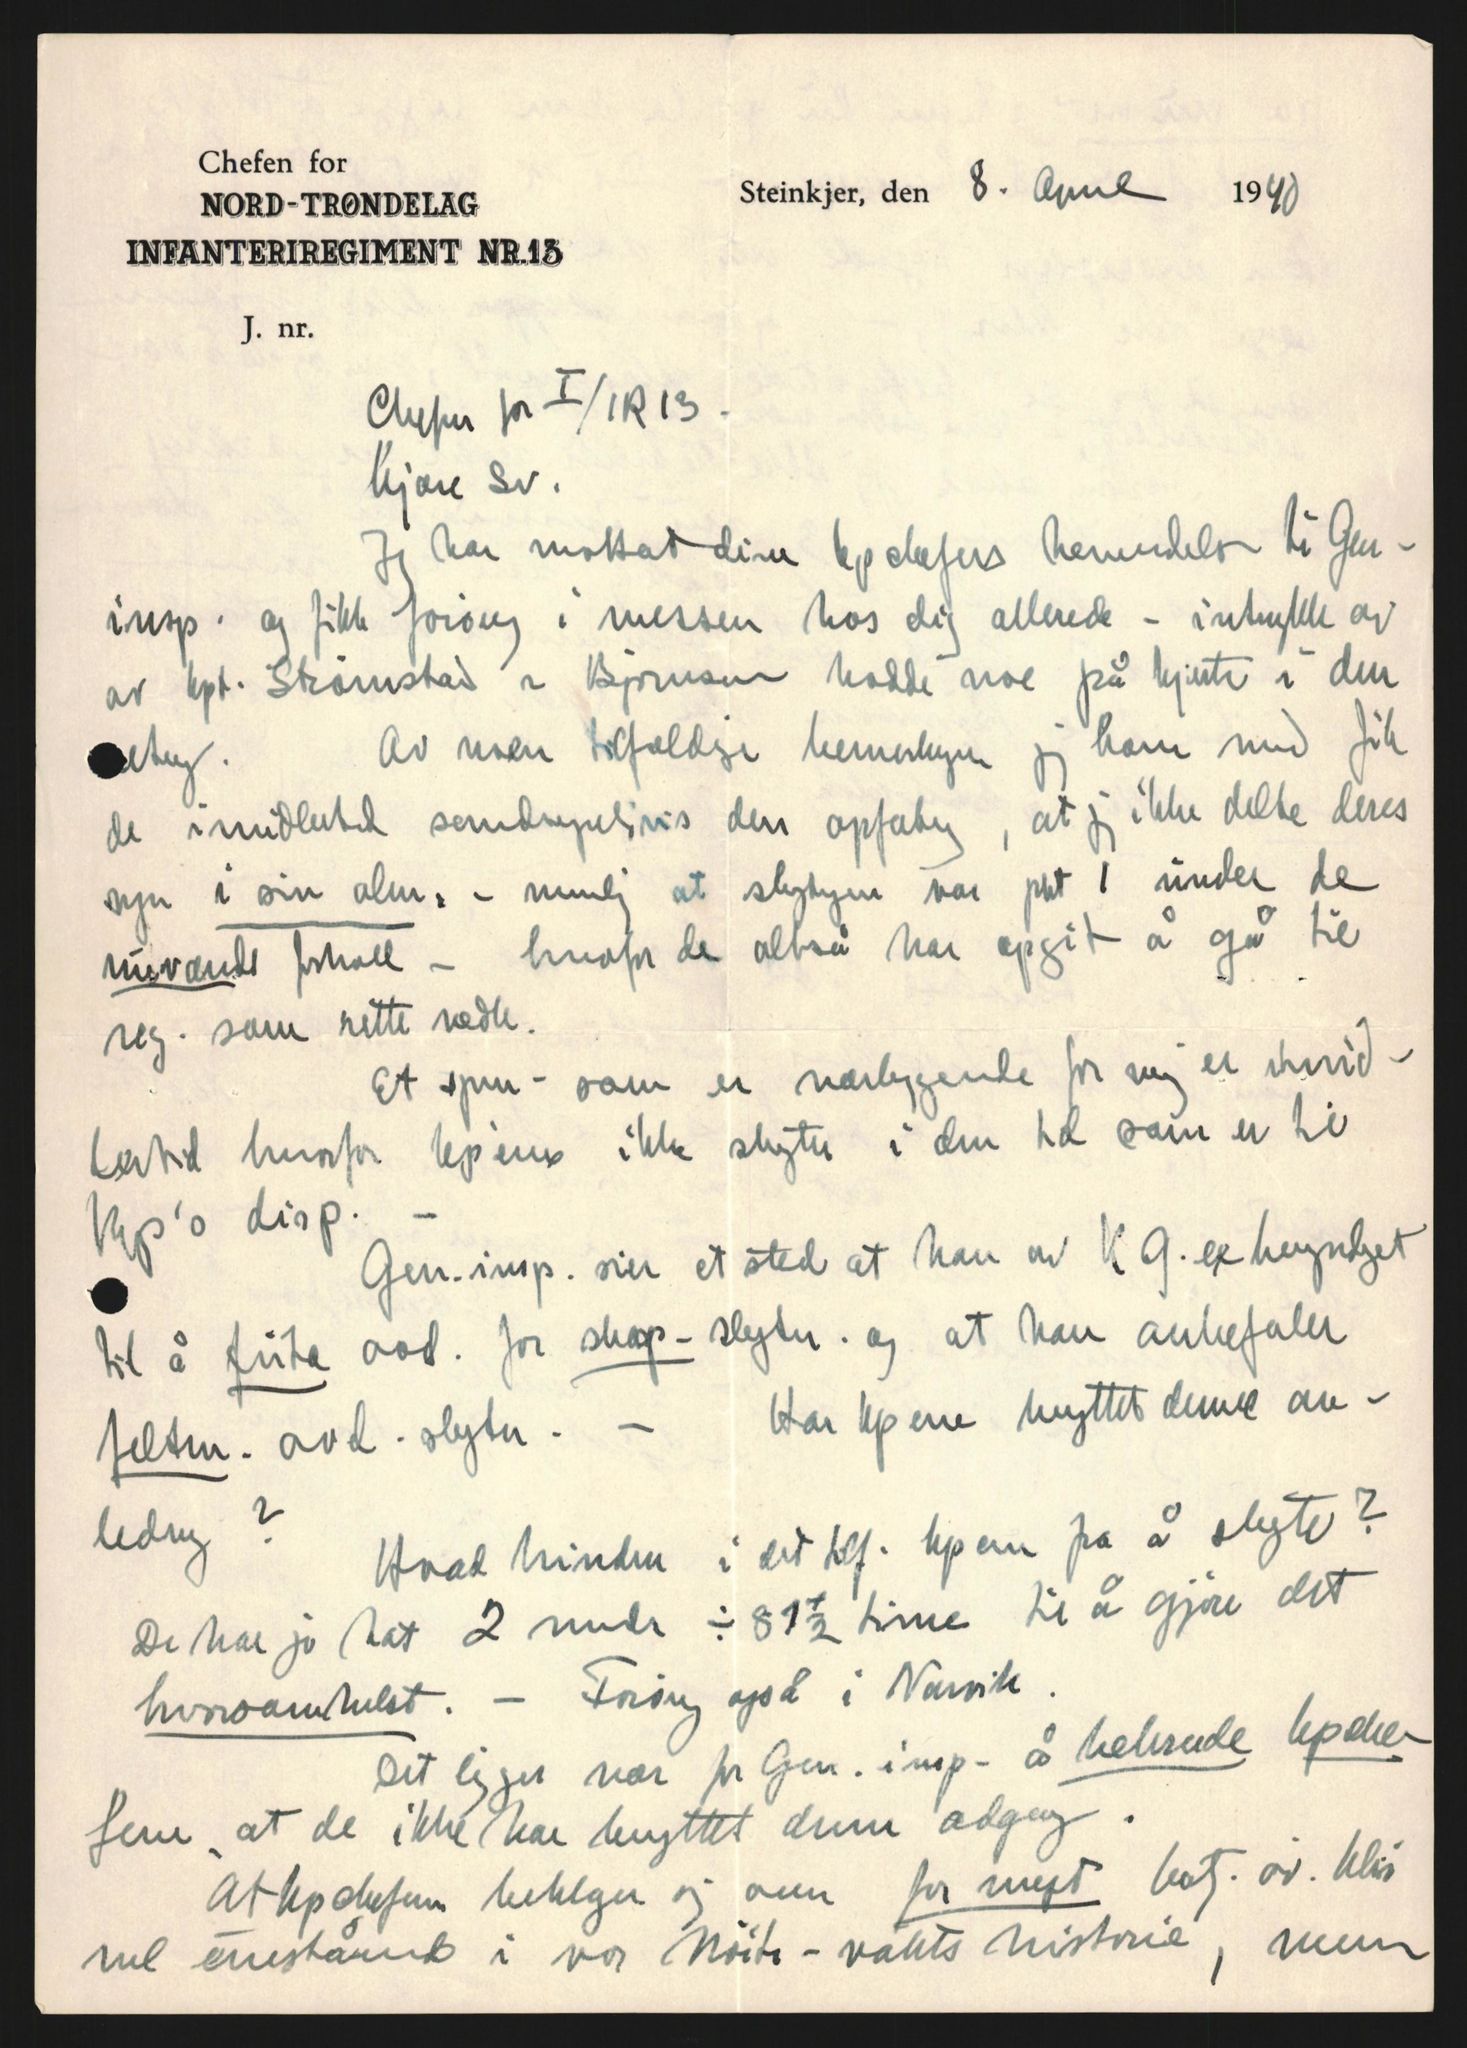 Chefen for
NORD-TRØNDELAG
INFANTERIREGIMENT NR.13
Steinkjer, den 8. April 1940
J. nr.
Chefen for I/IR 13.
Kjære Sv.
Jeg har mottat dine kpchefers henvendelse til Gen-
insp. og fikk forövrig i messen hos dig allerede - intrykk av
av kpt. Strömstad Björnsen hadde noe på hjerte i den
Av noen tilfældige bemerkninger jeg kom med fik
de imidlertid den opfatning, at jeg ikke delte deres
syn i sin alm. - nemlig at skytingen var pkt 1 under de
nuværende forhold - hvorfor de altså har opgit å gå til
reg. som rette vedk.
Et spm- som er nærliggende for mig er imid-
lertid hvorfor kpene ikke skyter i den tid som er til
Kp's disp. -
Gen.insp. sier et sted at han av K G. er bemyndiget
til å avd. for skarp-skytn. og at han anbefaler
feltm. avd. skytn. - Har kpene benyttet denne an-
ledning?
Hvad hindrer i det hele kpene fra å skyte?
De har jo hat 2 mndr ÷ 81½ time til å gjöre det
hvorsomhelst. - Forövrig også i Narvik.
Det ligger nær for Gen.insp- å bebreide kpche-
fene, at de ikke har benyttet denne adgang.
At kpchefene beklager sig over for meget batj. öv. blir
vel enestående i vor Nöitr-vakts historie, men